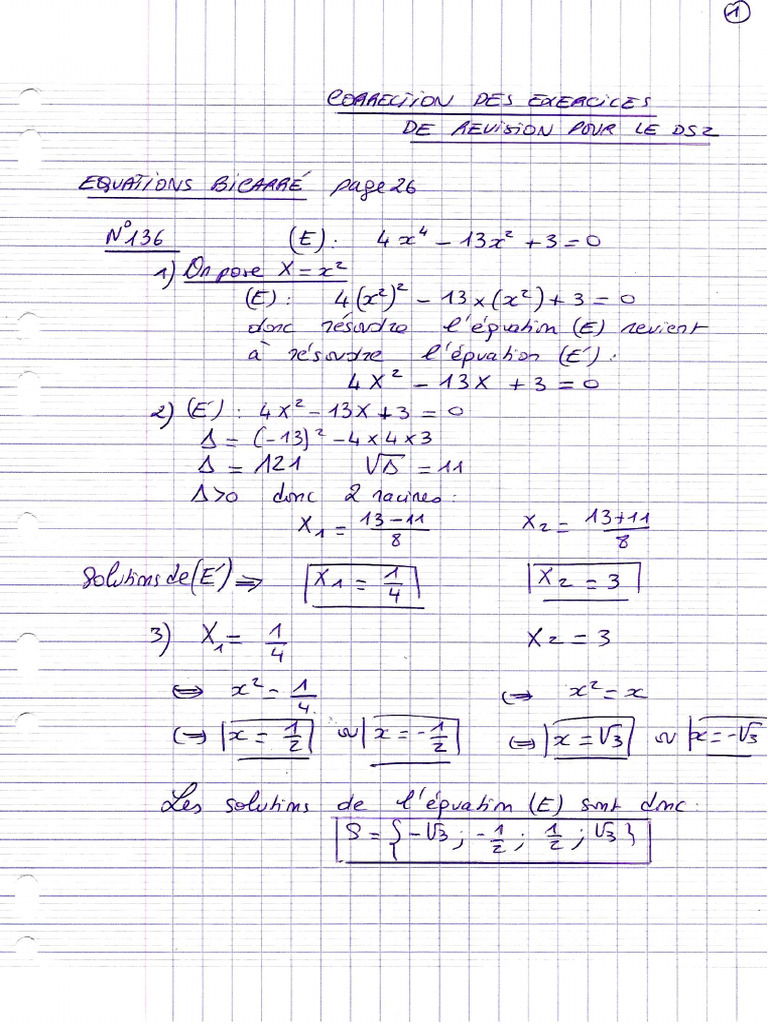 1
CORRECTION DES EXERCICES
DE REVISION POUR LE DS2
EQUATIONS BICARRÉ page 26
N°136 (E) : 4x⁴ − 13x² + 3 = 0
1) On pose X = x²
(E) : 4(x²)² − 13×(x²) + 3 = 0
donc résoudre l'équation (E) revient
à résoudre l'équation (E') :
4X² − 13X + 3 = 0
2) (E') : 4X² − 13X + 3 = 0
Δ = (−13)² − 4×4×3
Δ = 121 √Δ = 11
Δ>0 donc 2 racines :
X₁ = (13−11)/8 X₂ = (13+11)/8
Solutions de (E') ⇒ X₁ = 1/4 X₂ = 3
3) X₁ = 1/4 X₂ = 3
⇔ x² = 1/4 ⇔ x² = x
⇔ x = 1/2 ou x = −1/2 ⇔ x = √3 ou x = −√3
Les solutions de l'équation (E) sont donc :
S = {−√3 ; −1/2 ; 1/2 ; √3}